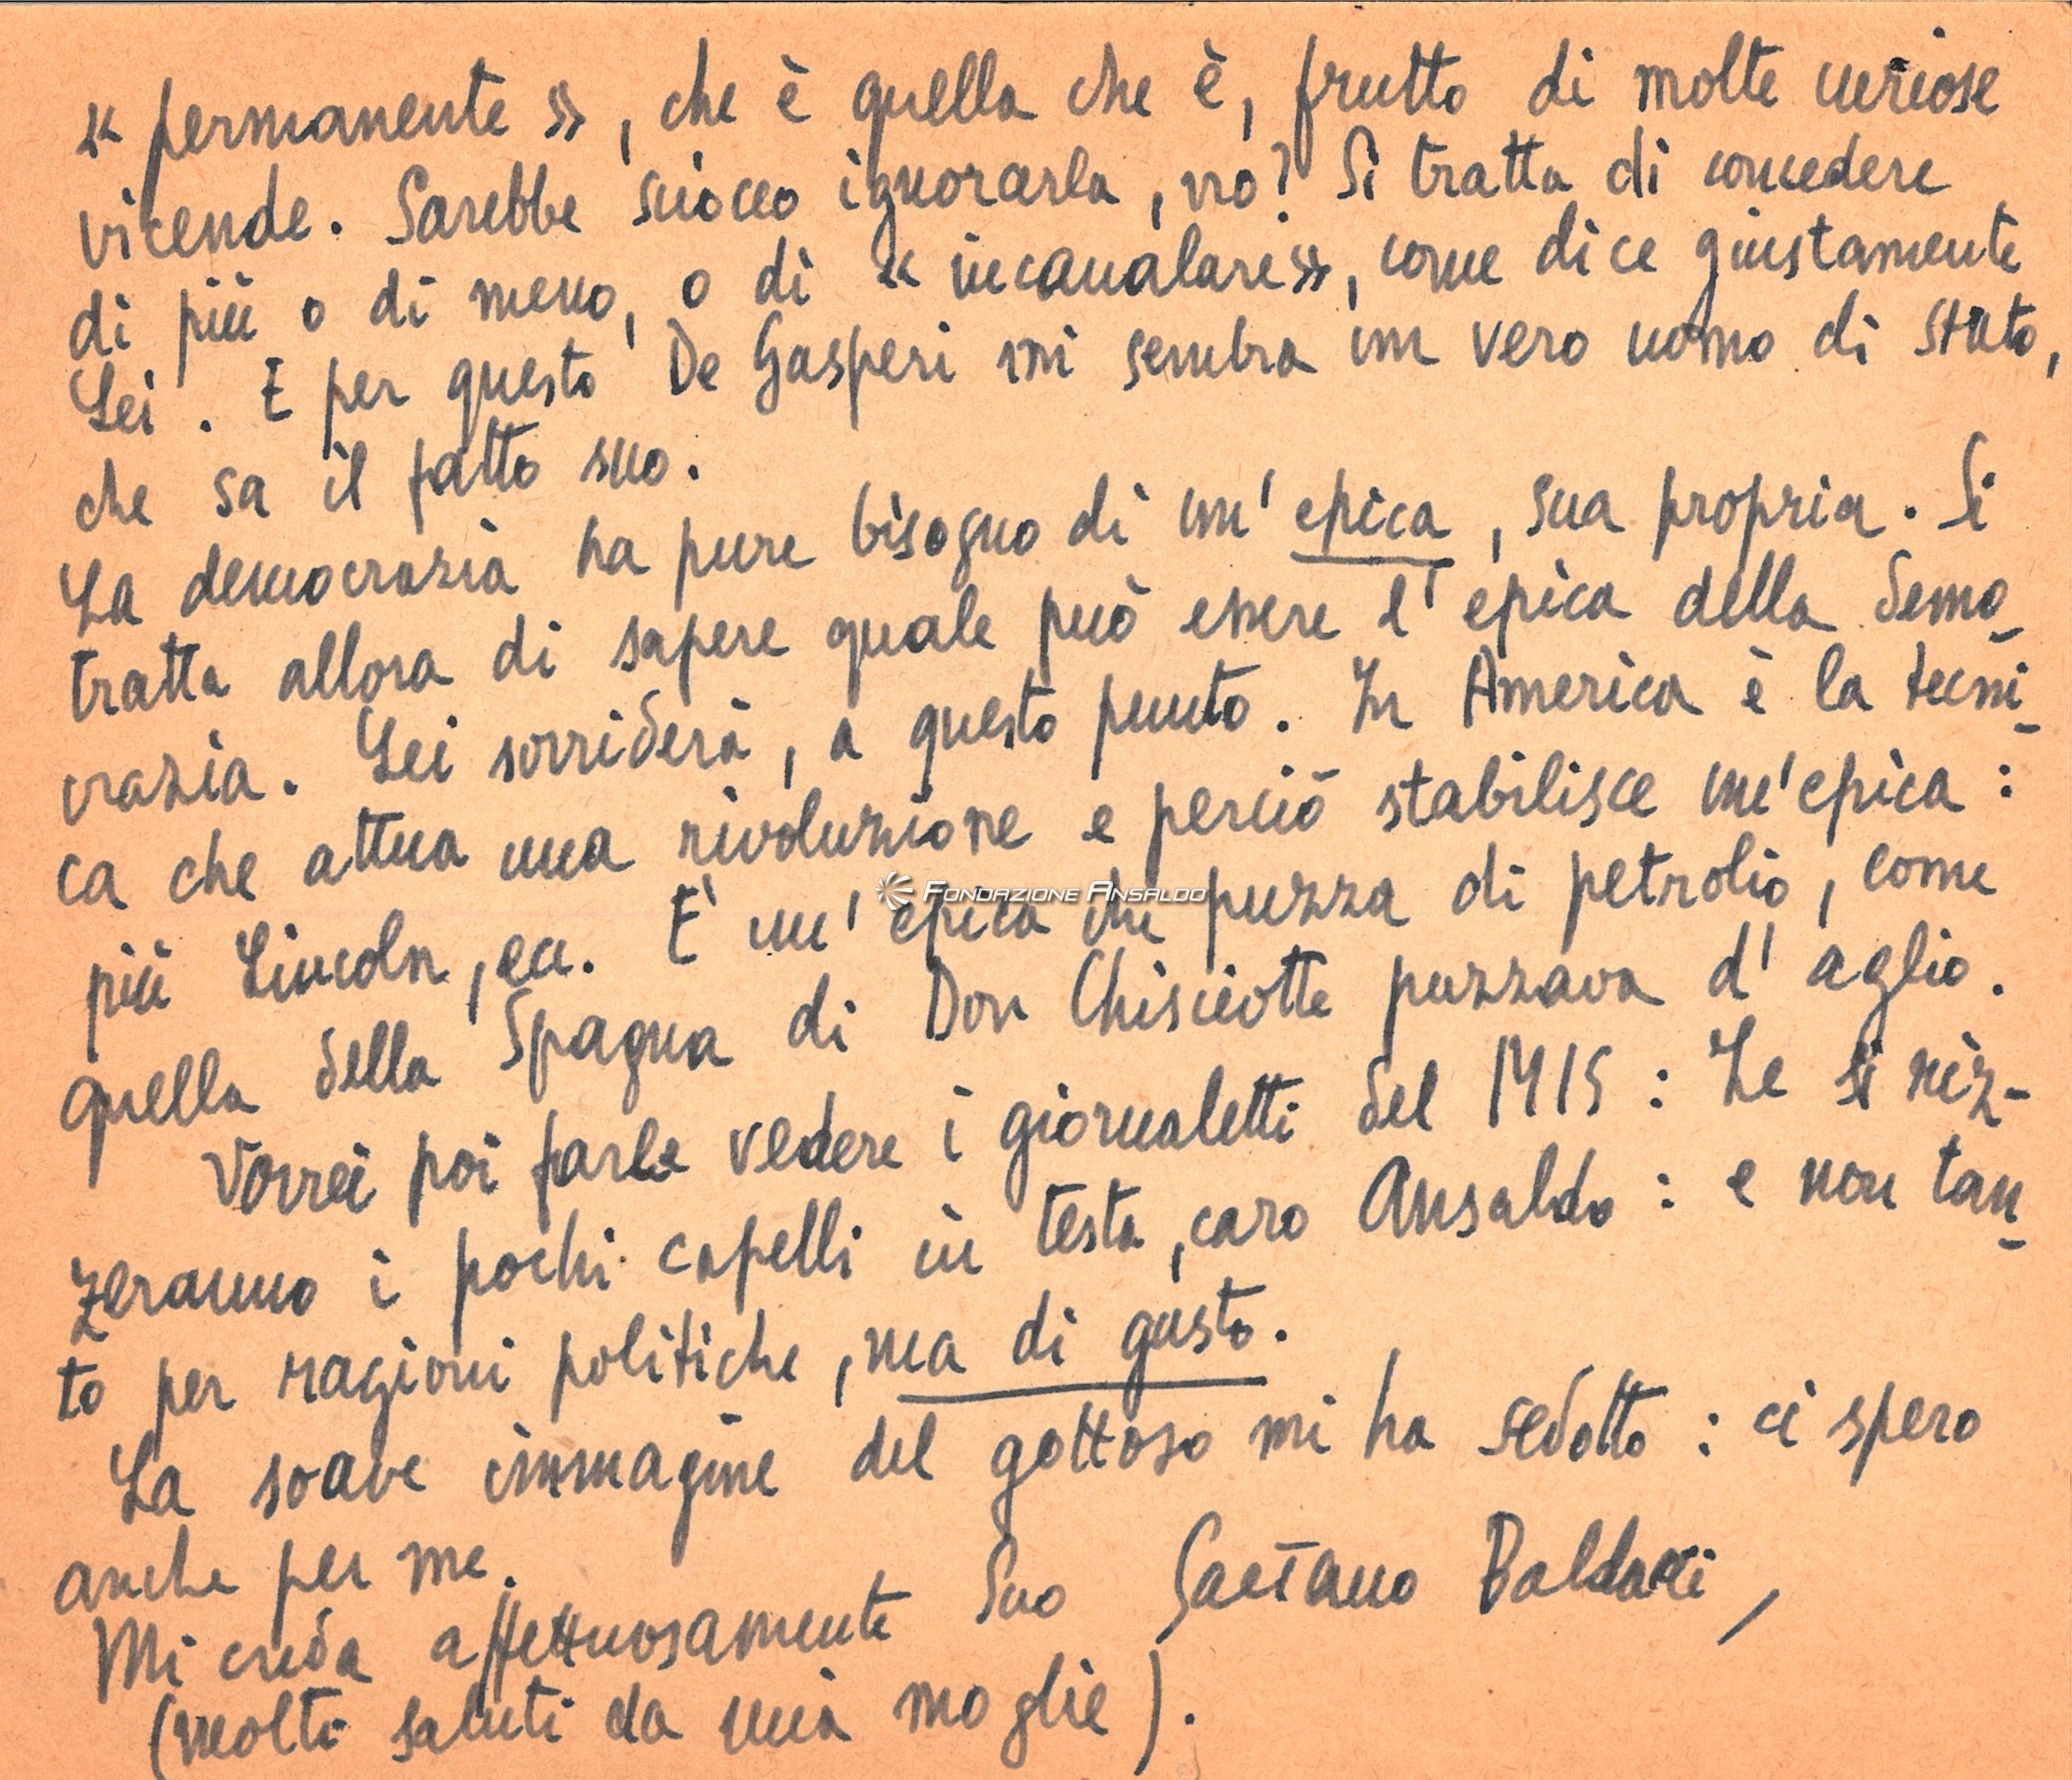 « permanente », che è quella che è, frutto di molte curiose
vicende. Sarebbe sciocco ignorarla, no? Si tratta di concedere
di più o di meno, o di « incanalare», come dice giustamente
Lei. E per questo De Gasperi mi sembra un vero uomo di stato,
che sa il fatto suo.
La democrazia ha pure bisogno di un' epica, sua propria. Si
tratta allora di sapere quale può essere l' epica della demo-
crazia. Lei sorriderà, a questo punto. In America è la tecni-
ca che attua una rivoluzione e perciò stabilisce un'epica:
più Lincoln, ecc. È un' epica che puzza di petrolio, come
FONDAZIONE ANSALDO
quella della Spagna di Don Chisciotte puzzava d' aglio.
Vorrei poi farle vedere i giornaletti del 1915: Le si riz-
zeranno i pochi capelli in testa, caro Ansaldo: e non tan-
to per ragioni politiche, ma di gusto.
La soave immagine del gottoso mi ha sedotto: ci spero
anche per me.
Mi creda affettuosamente Suo Gaetano Baldacci,
(molti saluti da mia moglie).